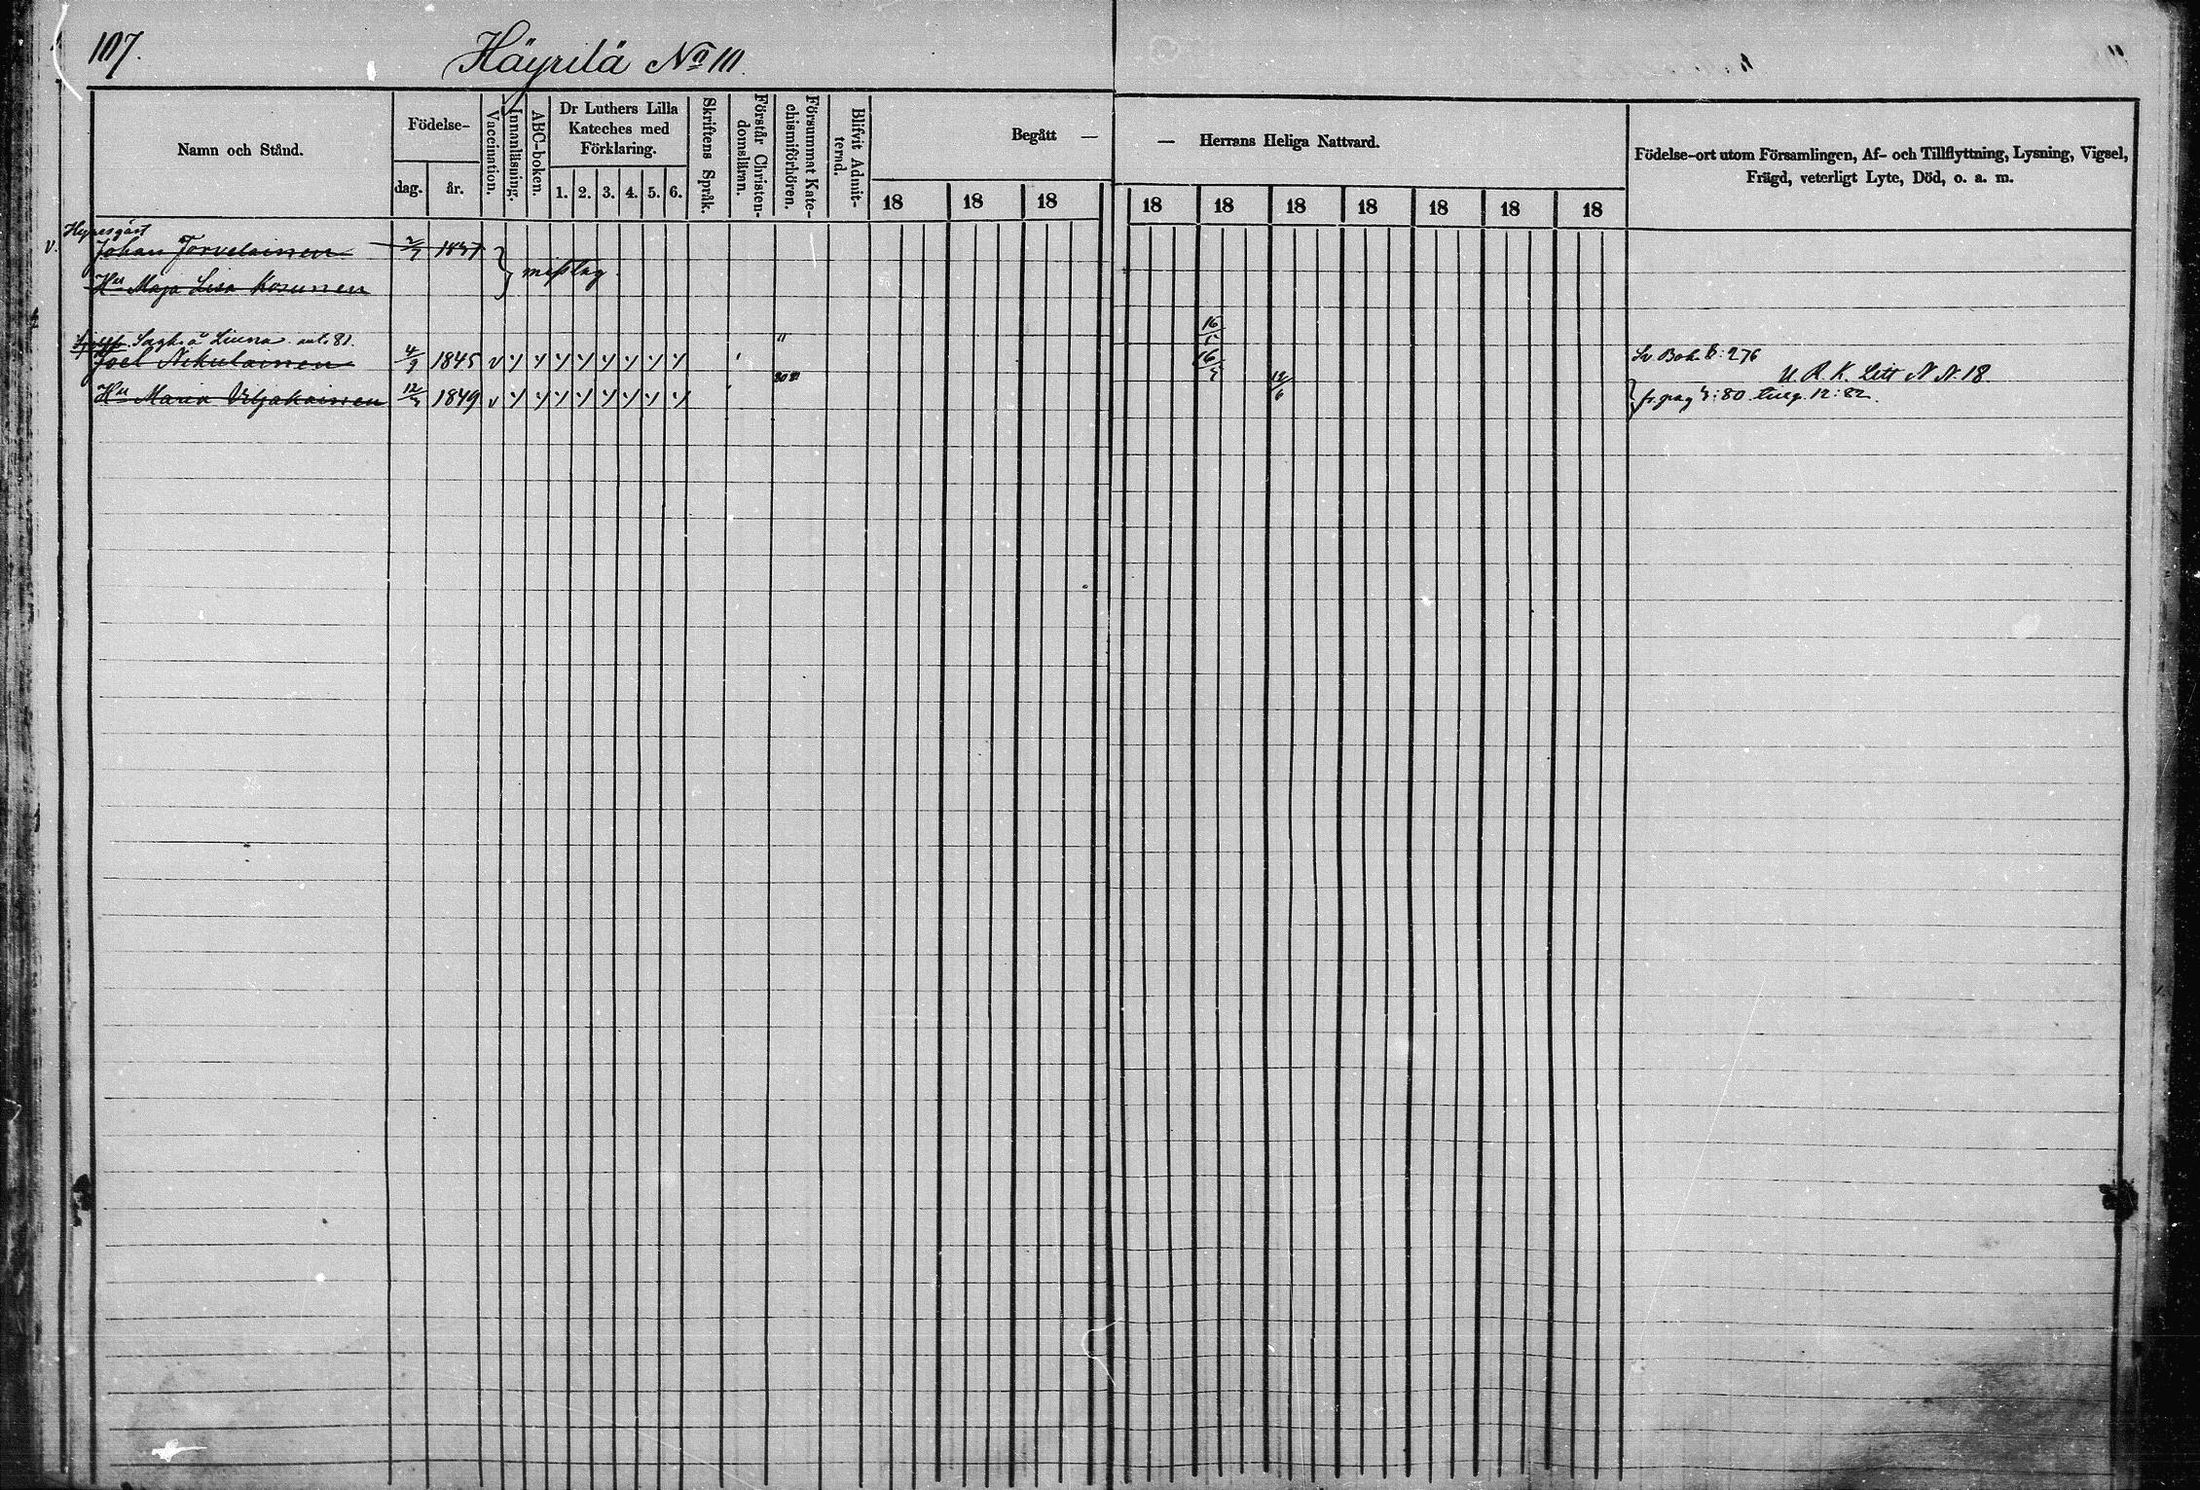 107.
Häyrilä No 10.
Namn och Stånd.
Födelse-
dag.
år.
Vaccination.
Innanläsning.
ABC-boken.
Dr Luthers Lilla
Kateches med
Förklaring.
1. 2. 3. 4. 5. 6.
Skriftens Språk.
Förstår Christen-
domsläran.
Försummat Kate-
chismiförhören.
Blifvit Admit-
terad.
Begått —
18 18 18
— Herrans Heliga Nattvard.
18 18 18 18 18 18 18
Födelse-ort utom Församlingen, Af- och Tillflyttning, Lysning, Vigsel,
Frägd, veterligt Lyte, Död, o. a. m.
v. Johan Torvelainen 1837
misstag
Hu Maja Lisa Kosunen
Joel Nikulainen 4/9 1845 v
16/5
Hu Maria 1849 v
12/6
U. R. K. Litt N N. 18.